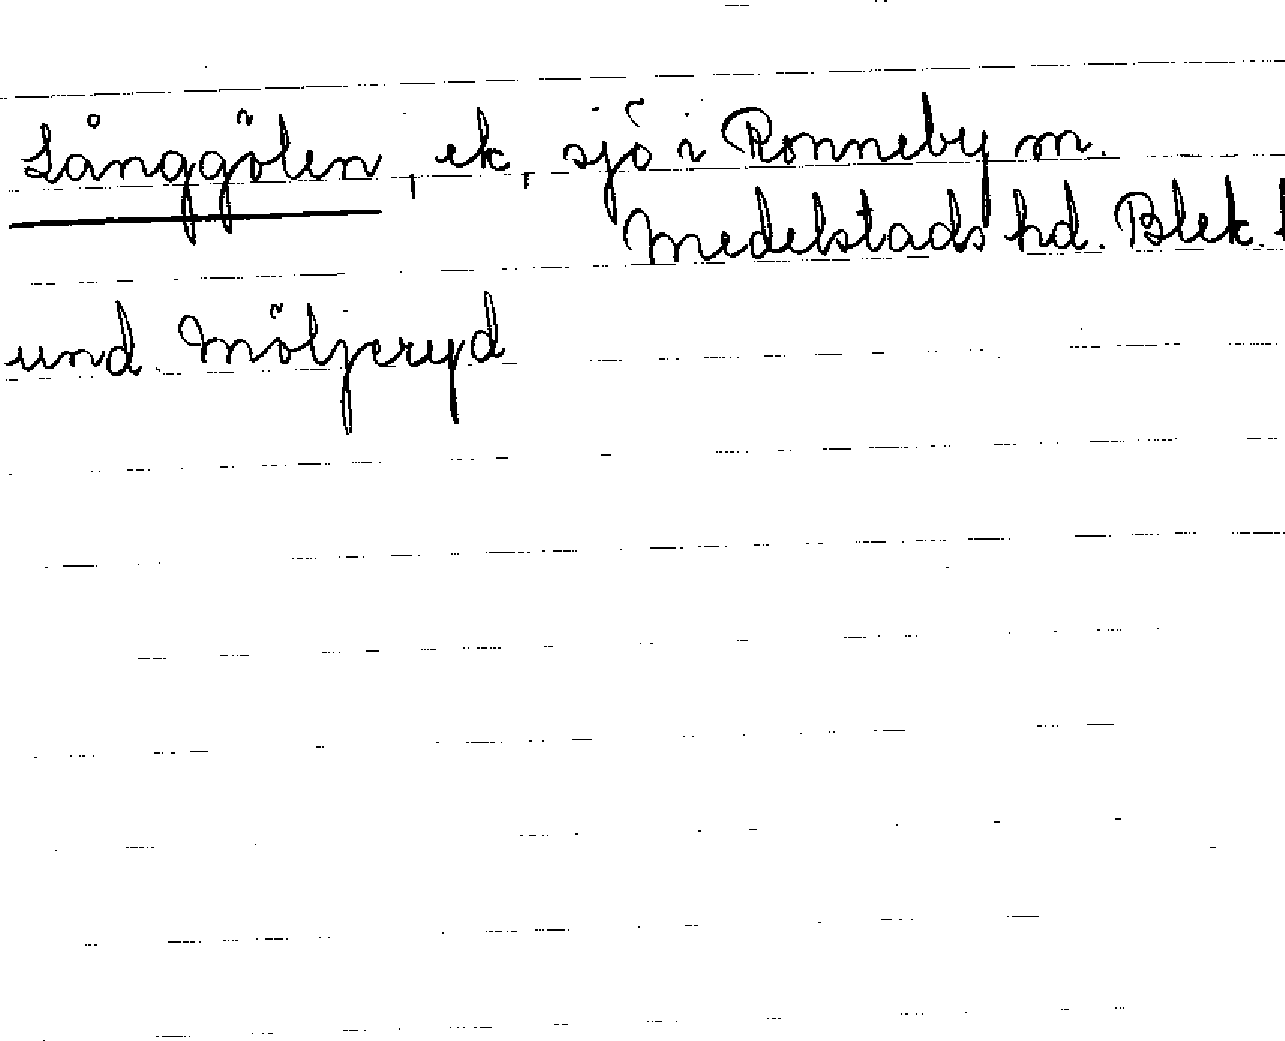 Långgölen, ek, sjö i Ronneby m.
Medelstads hd. Blek. l
und. Möljeryd